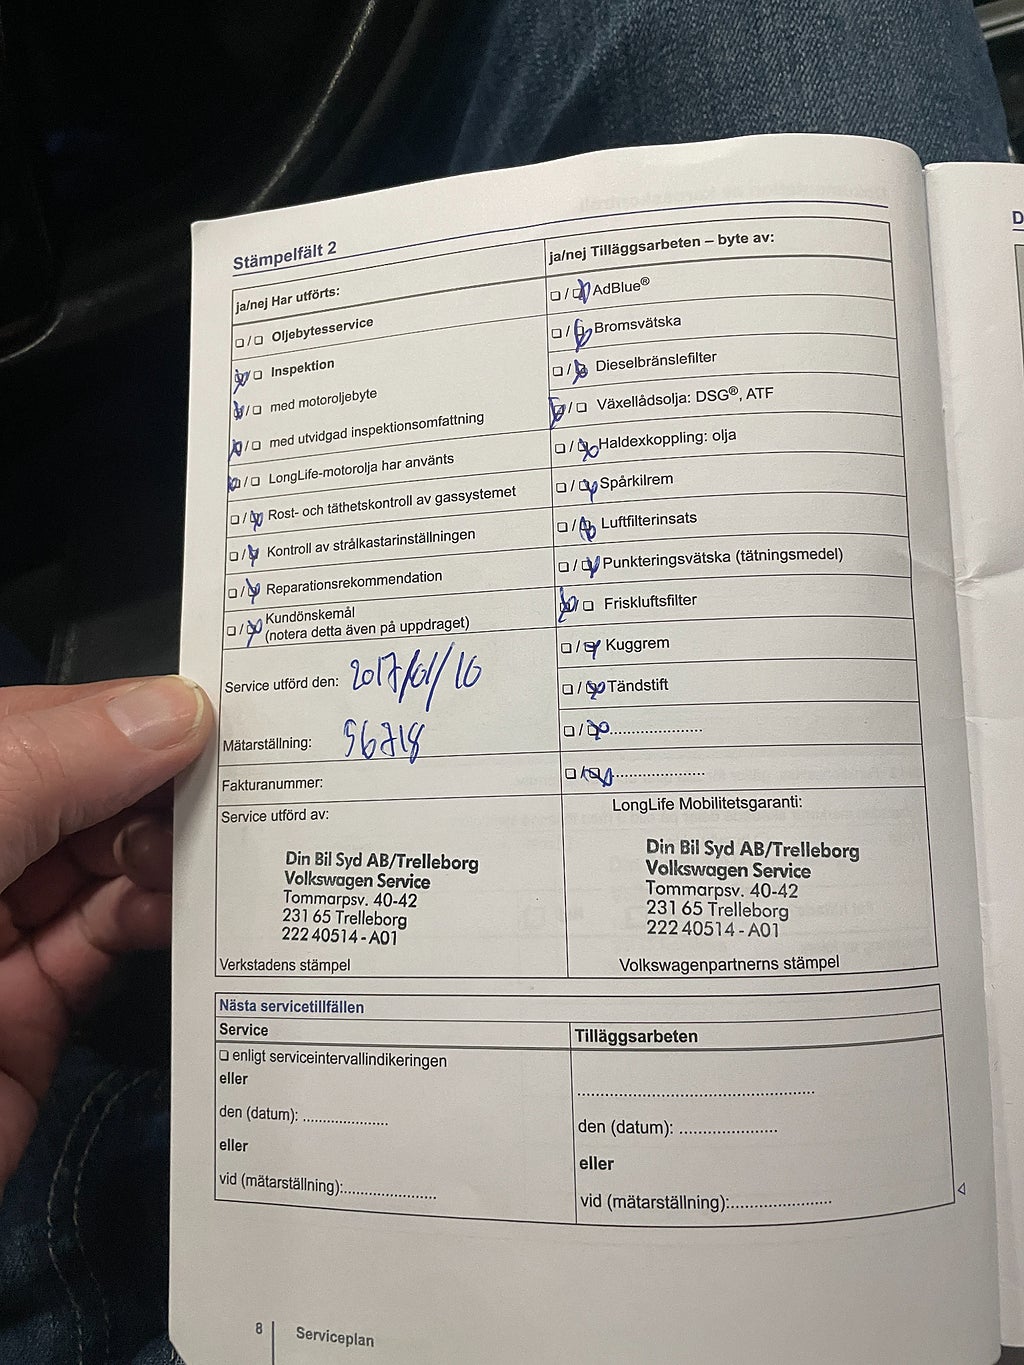 Stämpelfält 2
ja/nej Har utförts:
❏ / ❏ Oljebytesservice
❏ / ❏ Inspektion
❏ / ❏ med motoroljebyte
❏ / ❏ med utvidgad inspektionsomfattning
❏ / ❏ LongLife-motorolja har använts
❏ / ❏ Rost- och täthetskontroll av gassystemet
❏ / ❏ Kontroll av strålkastarinställningen
❏ / ❏ Reparationsrekommendation
❏ / ❏ Kundönskemål
(notera detta även på uppdraget)
Service utförd den: 2017/01/10
Mätarställning: 56718
Fakturanummer:
ja/nej Tilläggsarbeten – byte av:
❏ / ❏ AdBlue®
❏ / ❏ Bromsvätska
❏ / ❏ Dieselbränslefilter
❏ / ❏ Växellådsolja: DSG®, ATF
❏ / ❏ Haldexkoppling: olja
❏ / ❏ Spårkilrem
❏ / ❏ Luftfilterinsats
❏ / ❏ Punkteringsvätska (tätningsmedel)
❏ / ❏ Friskluftsfilter
❏ / ❏ Kuggrem
❏ / ❏ Tändstift
❏ / ❏ ......................
❏ / ❏ ......................
Service utförd av:
Din Bil Syd AB/Trelleborg
Volkswagen Service
Tommarpsv. 40-42
231 65 Trelleborg
222 40514 - A01
Verkstadens stämpel
LongLife Mobilitetsgaranti:
Din Bil Syd AB/Trelleborg
Volkswagen Service
Tommarpsv. 40-42
231 65 Trelleborg
222 40514 - A01
Volkswagenpartnerns stämpel
Nästa servicetillfällen
Service
❏ enligt serviceintervallindikeringen
eller
den (datum): ....................
eller
vid (mätarställning):......................
Tilläggsarbeten
.....................................................
den (datum): ......................
eller
vid (mätarställning):......................
8
Serviceplan
D